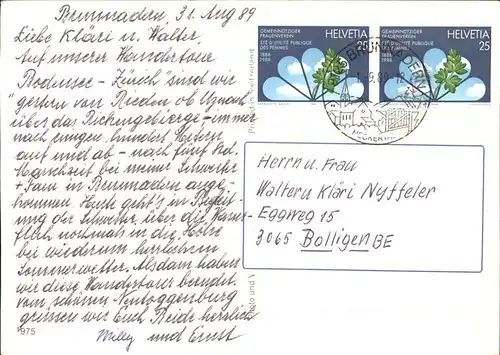 Brunnadern, 31. Aug 89
Liebe Kläri u. Walter,
Auf unserer Wandertour
Bodensee - Zürich" sind wir
gestern von Rieden ob Uznach
über das Rickengebirge - immer
nach einigen hundert Metern
auf und ab - nach fünf Std.
Marschzeit bei meiner Schwester
+ Fam in Brunnadern ange-
kommen. Heute geht's in Beglei-
tung der Schwester über die Wasser-
fluh nochmals in die Höhe
bei wiederum herrlichem
Sommerwetter. Alsdann haben
wir diese Wandertour beendet.
Vom schönen Neutoggenburg
grüssen wir Euch Beide herzlich
Milly und Ernst
975
GEMEINNÜTZIGER
FRAUENVEREIN
STÉ D'UTILITÉ PUBLIQUE
DES FEMMES
1888
1988
HELVETIA
25
GEMEINNÜTZIGER
FRAUENVEREIN
STÉ D'UTILITÉ PUBLIQUE
DES FEMMES
1888
1988
HELVETIA
25
BRUNNADERN
1.9.89
NECKERTAL
Herrn u. Frau
Walter u. Kläri Nyffeler
Eggweg 15
3065 Bolligen BE